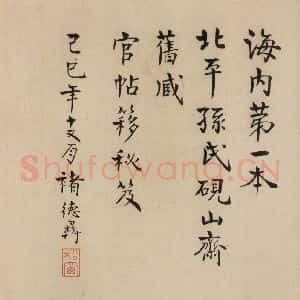 海内第一本
北平孫氏硯山齋
舊藏
官帖簃秘笈
己巳年十月褚德彝
Shufawang.CN